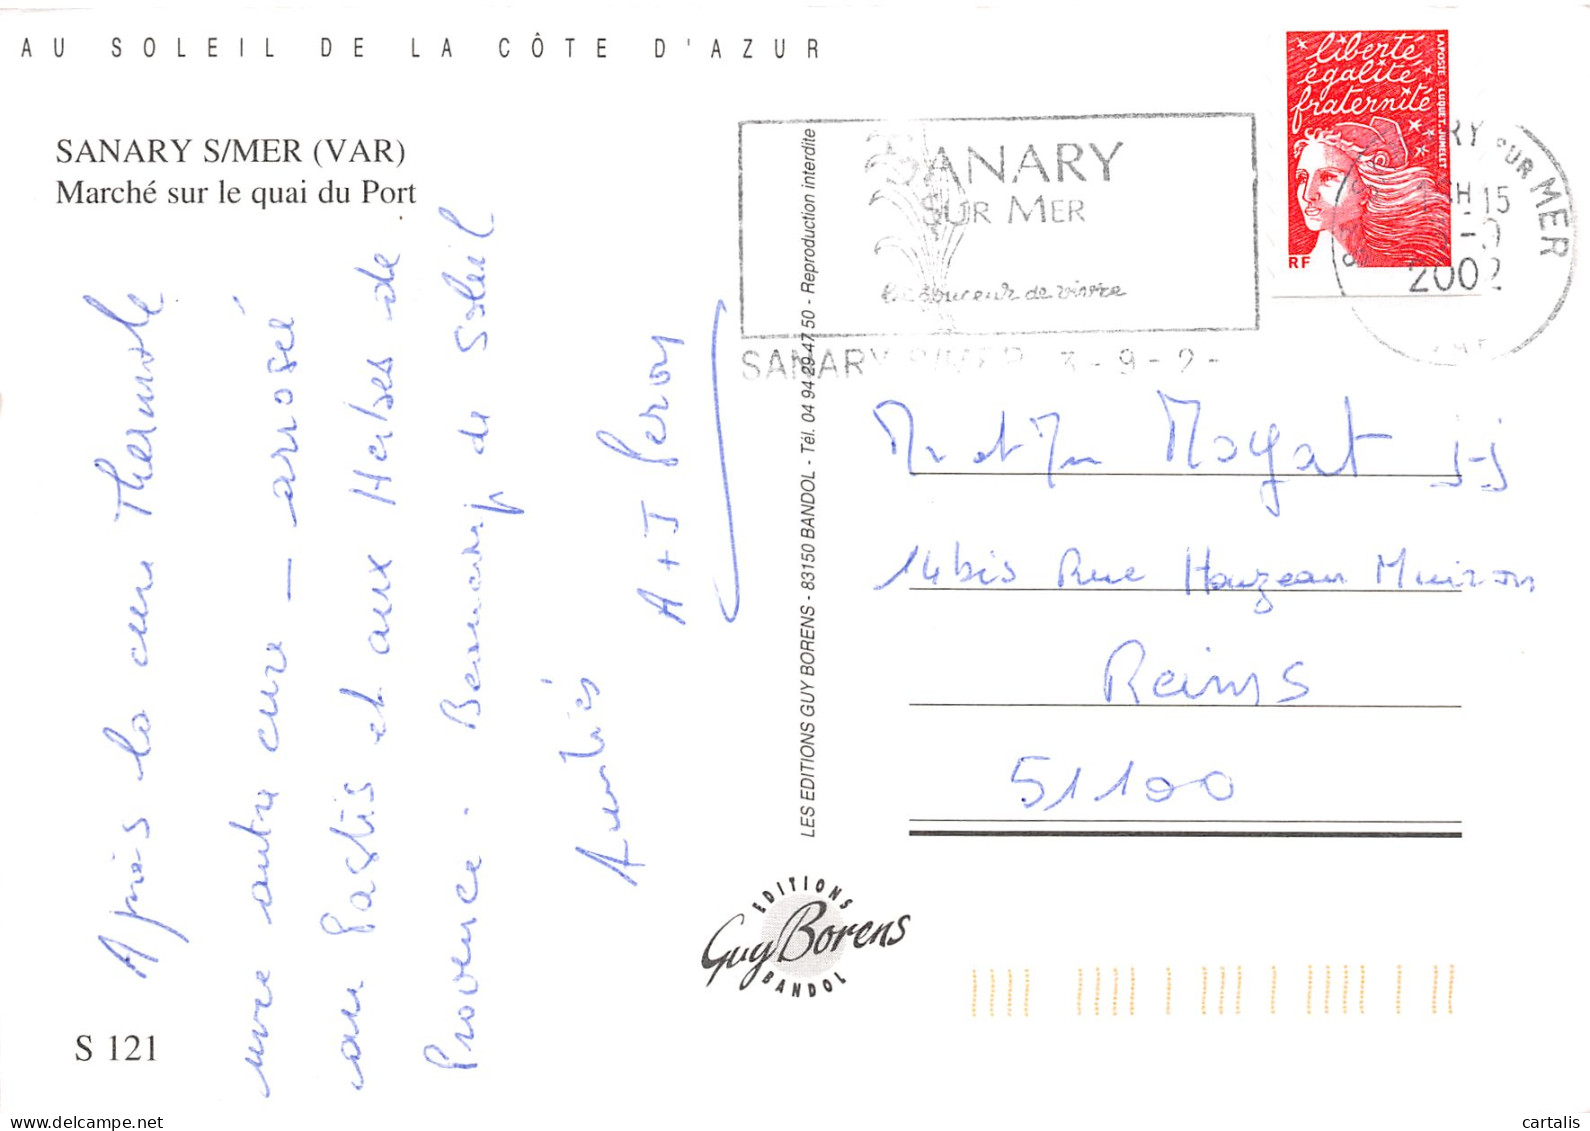 AU SOLEIL DE LA CÔTE D'AZUR
SANARY S/MER (VAR)
Marché sur le quai du Port
Après la cure Thermale
une autre cure — arrosée
au Pastis et aux Herbes de
Provence. Beaucoup de soleil
Amitiés
A + J Peroy
S 121
LES EDITIONS GUY BORENS - 83150 BANDOL - Tél. 04 94 29 47 50 - Reproduction interdite
EDITIONS
Guy Borens
BANDOL
SANARY
SUR MER
La douceur de vivre
SANARY S/MER 3-9-2-
liberté
égalité
fraternité
LA POSTE LUQUET, JUMELET
RF
SUR MER
15
2002
Mr et Me Moyat J-J
14 bis Rue Houzeau Muiron
Reims
51100
cartalis
https://www.delcampe.net